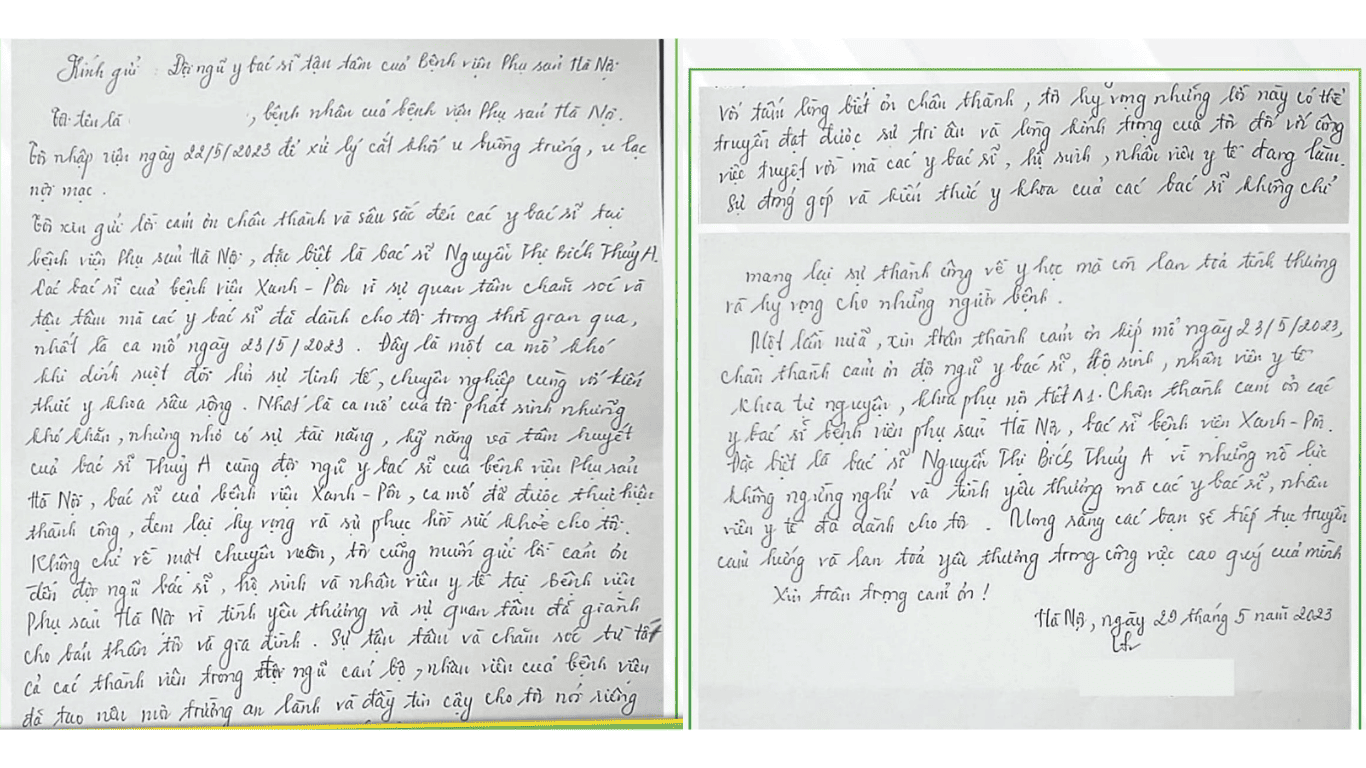 Kính gửi : Đội ngũ y bác sĩ tận tâm của Bệnh viện Phụ sản Hà Nội.
Tôi tên là , bệnh nhân của bệnh viện Phụ sản Hà Nội.
Tôi nhập viện ngày 22/5/2023 để xử lý cắt khối u buồng trứng, u lạc
nội mạc .
Tôi xin gửi lời cảm ơn chân thành và sâu sắc đến các y bác sĩ tại
bệnh viện Phụ sản Hà Nội, đặc biệt là bác sĩ Nguyễn Thị Bích Thủy A.
Các bác sĩ của bệnh viện Xanh - Pôn vì sự quan tâm chăm sóc và
tận tâm mà các y bác sĩ đã dành cho tôi trong thời gian qua,
nhất là ca mổ ngày 23/5/2023 . Đây là một ca mổ khó
khi dính ruột đòi hỏi sự tinh tế, chuyên nghiệp cùng với kiến
thức y khoa sâu rộng . Nhất là ca mổ của tôi phát sinh những
khó khăn, nhưng nhờ có sự tài năng, kỹ năng và tâm huyết
của bác sĩ Thủy A cùng đội ngũ y bác sĩ của bệnh viện Phụ sản
Hà Nội, bác sĩ của bệnh viện Xanh - Pôn, ca mổ đã được thực hiện
thành công, đem lại hy vọng và sự phục hồi sức khỏe cho tôi.
Không chỉ về mặt chuyên môn, tôi cũng muốn gửi lời cảm ơn
đến đội ngũ bác sĩ, hộ sinh và nhân viên y tế tại bệnh viện
Phụ sản Hà Nội vì tình yêu thương và sự quan tâm đã giành
cho bản thân tôi và gia đình . Sự tận tâm và chăm sóc từ tất
cả các thành viên trong đội ngũ cán bộ, nhân viên của bệnh viện
đã tạo nên môi trường an lành và đầy tin cậy cho tôi nói riêng
Với tấm lòng biết ơn chân thành, tôi hy vọng những lời này có thể
truyền đạt được sự tri ân và lòng kính trọng của tôi đối với công
việc tuyệt vời mà các y bác sĩ, hộ sinh, nhân viên y tế đang làm.
Sự đóng góp và kiến thức y khoa của các bác sĩ không chỉ
mang lại sự thành công về y học mà còn lan tỏa tình thương
và hy vọng cho những người bệnh .
Một lần nữa, xin chân thành cảm ơn kíp mổ ngày 23/5/2023,
chân thành cảm ơn đội ngũ y bác sĩ, hộ sinh, nhân viên y tế
khoa tự nguyện, khoa phụ nội tiết A1. Chân thành cảm ơn các
y bác sĩ bệnh viện phụ sản Hà Nội, bác sĩ bệnh viện Xanh - Pôn.
Đặc biệt là bác sĩ Nguyễn Thị Bích Thủy A vì những nỗ lực
không ngừng nghỉ và tình yêu thương mà các y bác sĩ, nhân
viên y tế đã dành cho tôi . Mong rằng các bạn sẽ tiếp tục truyền
cảm hứng và lan tỏa yêu thương trong công việc cao quý của mình
Xin trân trọng cảm ơn !
Hà Nội, ngày 29 tháng 5 năm 2023